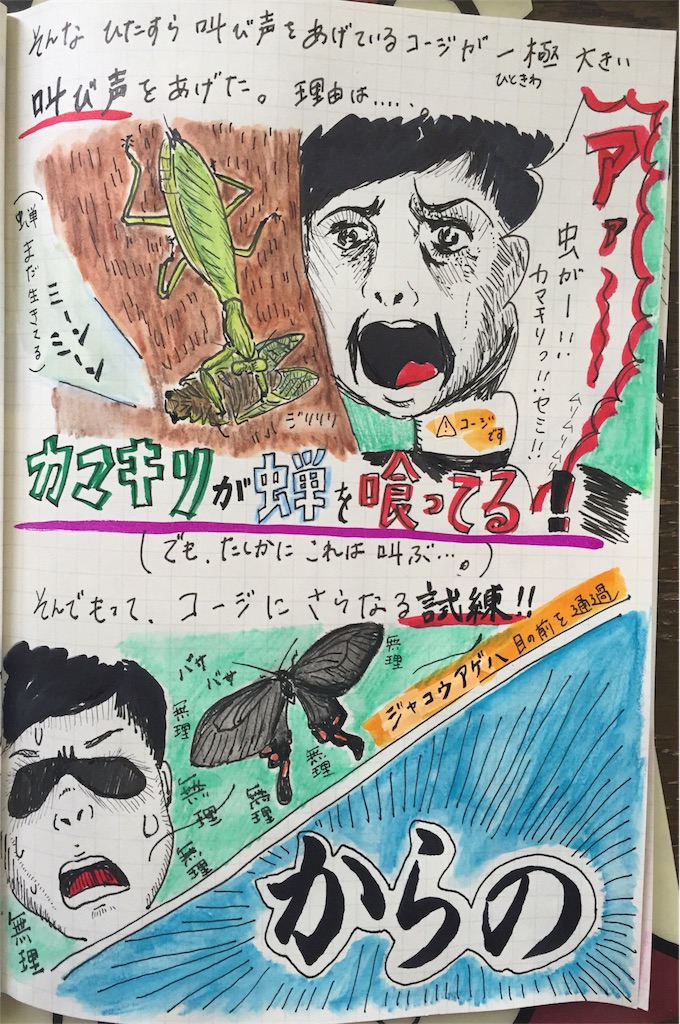 そんな ひたすら 叫び声をあげているコージが 一極 大きい
ひときわ
叫び声をあげた。理由は.....
アァーー
虫がーいい
カマキリっいいセミ!!
ムリムリムリ
(蝉まだ生きてる)
ミーン
ジーン
ジリリリ
⚠コージ
です
カマキリが蝉を喰ってる!
(でも、たしかに これは 叫ぶ…。)
そんでもって、コージに さらなる 試練!!
ジャコウアゲハ 目の前を通過
バサ
バサ
無理
無理
無理
無理
無理
無理
無理
からの